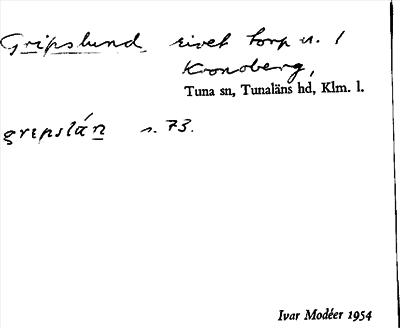 Gripslund rivet torp u. /
Kronoberg,
Tuna sn, Tunaläns hd, Klm. l.
gripslán s. 73.
Ivar Modéer 1954